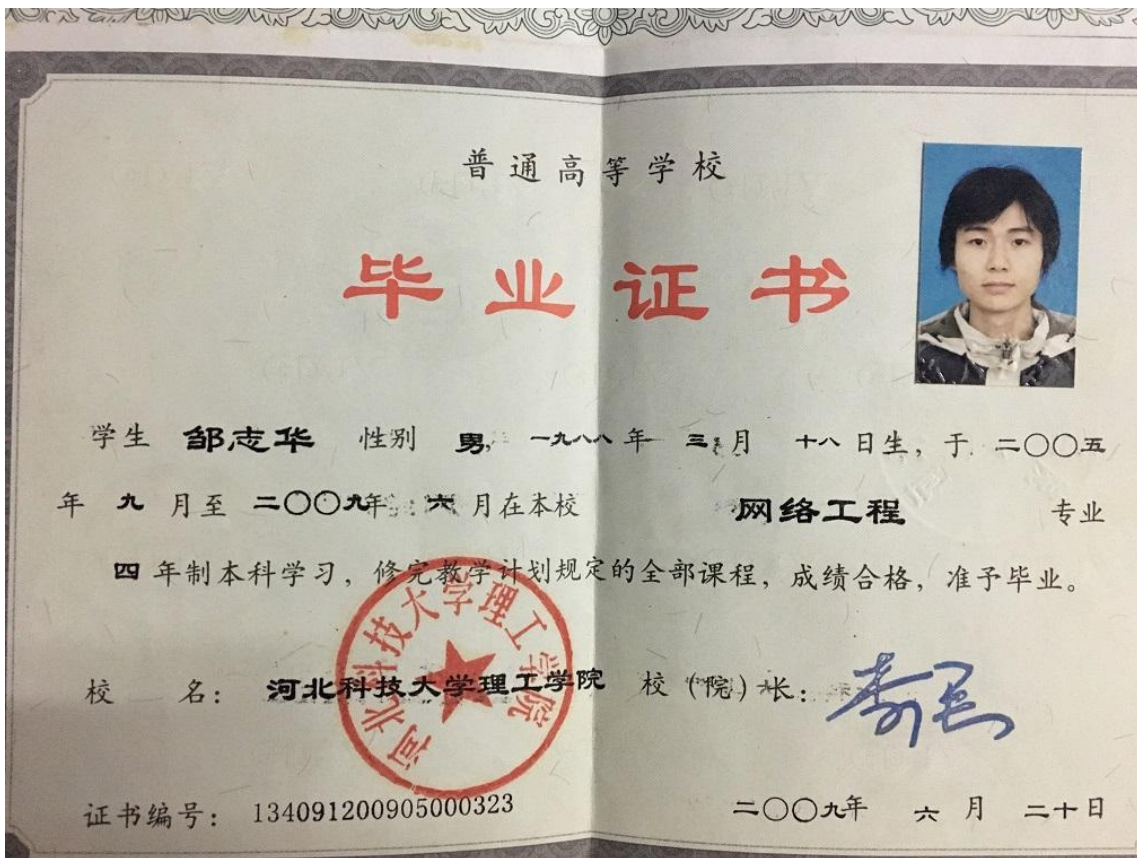 普通高等学校
毕业证书
学生 邹志华 性别 男, 一九八八年 三月 十八日生, 于 二〇〇五
年 九 月至 二〇〇九年 六 月在本校 网络工程 专业
四 年制本科学习, 修完教学计划规定的全部课程, 成绩合格, 准予毕业。
河北科技大学理工学院
校 名: 河北科技大学理工学院 校(院)长:
证书编号: 134091200905000323 二〇〇九年 六 月 二十日